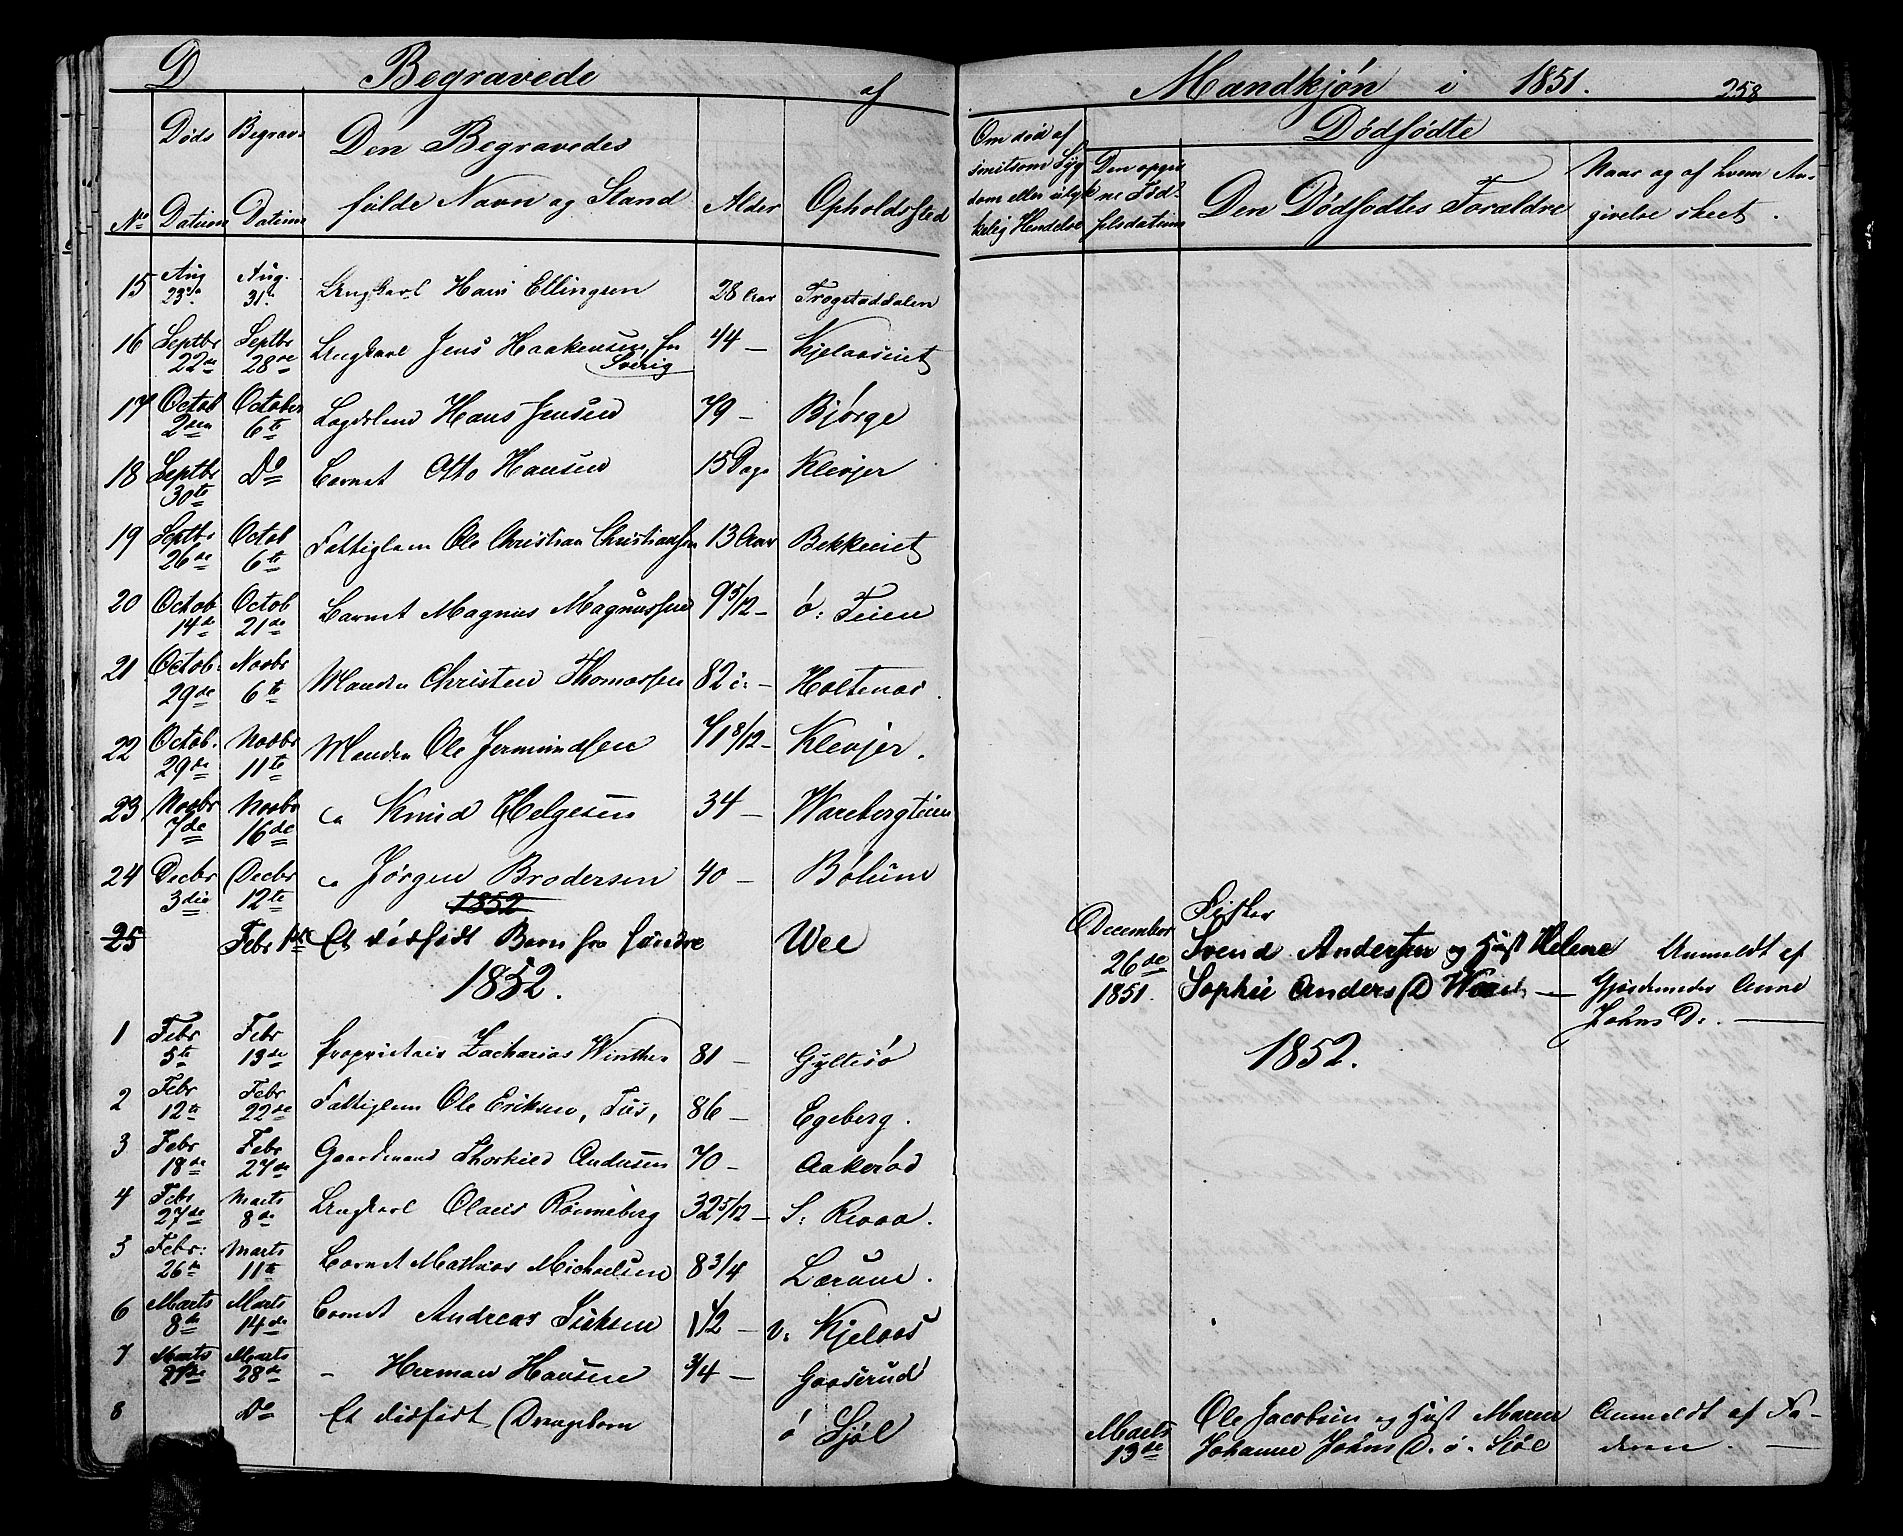 D Begravede af Mandkjøn i 1851. 258
No Døds Datum Begrav. Datum Den Begravedes fulde Navn og Stand Alder Opholdssted Om død af smitsom Syg dom eller ulyk kelig Hendelse Dødfødte Den opgiv ne Fød selsdatum Den Dødfødtes Forældre Naar og af hvem An- givelse skeet.
15 Aug 23de Aug. 31te Ungkarl Hans Ellingsen 28 Aar Trogstaddalen
16 Septbr 22de Septbr 28de Ungkarl Jens Haakensen, fra Sverig 44 — Kjelaaseiet
17 Octob 2den October 6te Hans Jensen 79 — Bjørge
18 Septbr 30te Do Barnet Otto Hansen 15 Dage Klevjer
19 Septbr 26de Octob 6te Fattiglem Ole Christian Christiansen 13 Aar Bekkeeiet
20 Octob 14de Octob 21de Barnet Magnus Magnussen 9 5/12 — ø: Teien
21 Octob. 29de Novbr 6te Manden Christen Thomassen 82 — Holtenæs
22 Octob. 29de Novbr 11te Manden Ole Jermundsen 71 8/12 — Klevjer.
23 Novbr 7de Novbr 16de Knud Helgesen 34 — Warebergteien
24 Decbr 3die Decbr 12te Jørgen Brodersen 40 — Bølum
1852
25 Febr 1ste Et dødfødt Barn fra søndre Wee December 26de 1851. Fisker Svend Andersen og Hust Helene Sophie Anders D — Anmeldt af Gjordemoder Anne Johns D. —
1852. 1852.
1 Febr 5te Febr 13de Proprietair Zacharias Winther 81 — Gyltesø
2 Febr 12te Febr 22de Fattiglem Ole Eriksen, Tus, 86 — Egeberg.
3 Febr 18de Febr 27de Gaardmand Thorkild Andersen 70 — Aakerød
4 Febr 27de Marts 8de Ungkarl Olaus Rønneberg 32 5/12 — S:
5 Febr: 26de Marts 11te Barnet Mathias Michaelsen 8 3/4 Lærum.
6 Marts 8de Marts 14de Barnet Andreas 1 1/2 — v: Kjelaas
7 Marts Marts 28de – Herman Hansen 3/4 — Gaaserud
8 Do Et dødfødt Drengebarn ø Sjøl Marts 13de Ole Jacobsen og Hust Maren Johanne Johns D. ø. Sjøl Anmeldt af Fa- deren. —